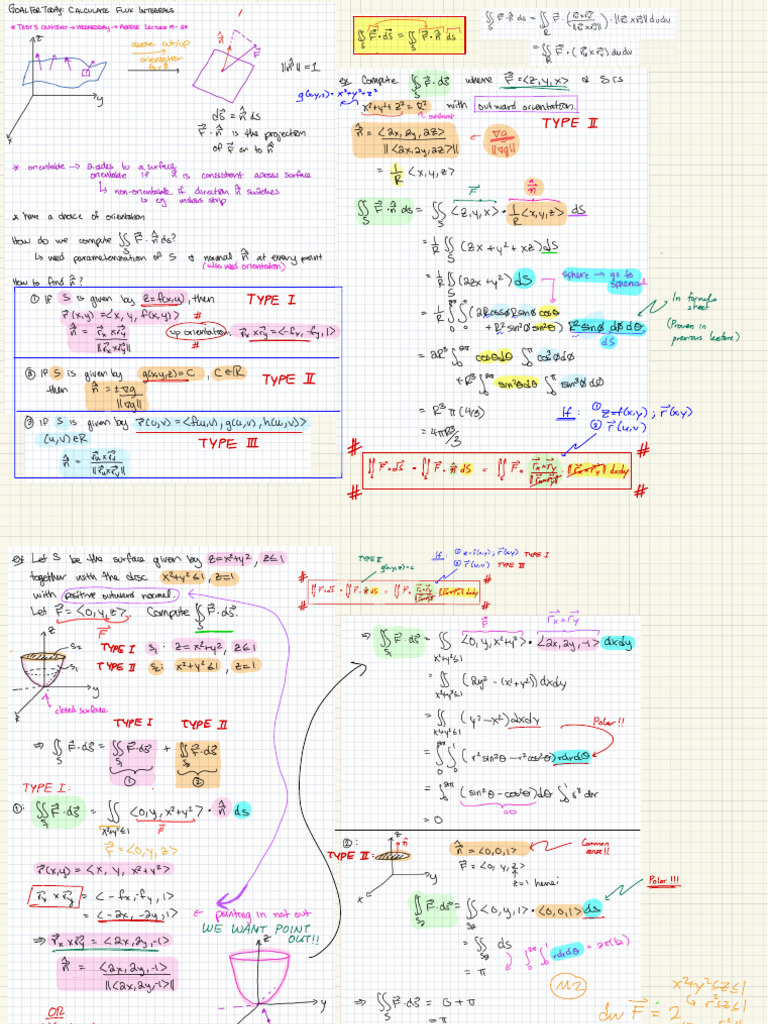 GOAL FOR TODAY: CALCULATE FLUX INTEGRALS
z
y
x
choose out/up orientation
n̂
F⃗
||n̂|| = 1
dS⃗ = n̂ dS
F⃗·n̂ is the projection
of F⃗ on to n̂
* orientable → 2 sides to a surface
orientable if n̂ is consistent across surface
↳ non-orientable if direction n̂ switches
is eg mobius strip
* have a choice of orientation
How do we compute ∬_S F⃗·n̂ dS?
↳ need parameterization of S & normal n̂ at every point
(also need orientation)
How to find n̂?
① If S is given by z=f(x,y), then TYPE I
r⃗(x,y) = <x, y, f(x,y)>
n̂ = r⃗x×r⃗y / ||r⃗x×r⃗y||
up orientation: r⃗x×r⃗y = <-fx, -fy, 1>
② If S is given by g(x,y,z)=C, C∈R TYPE II
then n̂ = ±∇g / ||∇g||
③ If S is given by r⃗(u,v) = <f(u,v), g(u,v), h(u,v)>
(u,v)∈R TYPE III
n̂ = r⃗u×r⃗v / ||r⃗u×r⃗v||
∬_S F⃗·dS⃗ = ∬_S F⃗·n̂ dS
∬_S F⃗·n̂ dS = ∬_R F⃗·(r⃗u×r⃗v / ||r⃗u×r⃗v||)·||r⃗u×r⃗v|| du dv
= ∬_R F⃗·(r⃗u×r⃗v) du dv
ex Compute ∬_S F⃗·dS⃗ where F⃗=<z,y,x> & S is
x²+y²+z²=R² with outward orientation.
constant
TYPE II
n̂ = <2x,2y,2z> / ||<2x,2y,2z>|| ← ∇g / ||∇g||
= 1/R <x,y,z>
∬_S F⃗·n̂ dS = ∬_S <z,y,x>·1/R<x,y,z> dS
= 1/R ∬_S (zx+y²+xz) dS
= 1/R ∬_S (2zx+y²) dS
sphere → go to spherical
In formula sheet
(Proven in previous lecture)
= R³π(4/3)
= 4πR³/3
If: ① z=f(x,y); r⃗(x,y)
② r⃗(u,v)
∬_S F⃗·dS⃗ = ∬_S F⃗·n̂ dS = ∬_S F⃗·r⃗x×r⃗y / ||r⃗x×r⃗y||·||r⃗x×r⃗y|| dxdy
ex Let S be the surface given by z=x²+y², z≤1
together with the disc x²+y²≤1, z=1
with positive outward normal.
Let F⃗ = <0,y,z>. Compute ∬_S F⃗·dS⃗.
TYPE I S₁: z=x²+y², z≤1
TYPE II S₂: x²+y²≤1, z=1
closed surface
TYPE I TYPE II
⇒ ∬_S F⃗·dS⃗ = ∬_S₁ F⃗·dS⃗ + ∬_S₂ F⃗·dS⃗
① ②
TYPE I:
①: ∬_S₁ F⃗·dS⃗ = ∬_x²+y²≤1 <0,y,x²+y²>·n̂ dS
F⃗ = <0,y,z>
r⃗(x,y) = <x, y, x²+y²>
r⃗x×r⃗y = <-fx,-fy,1>
= <-2x,-2y,1> ← pointing in not out
WE WANT POINT OUT!!
⇒ r⃗x×r⃗y = <2x,2y,-1>
n̂ = <2x,2y,-1> / ||<2x,2y,-1>||
OR
TYPE II
g(x,y,z)=c
If: ① z=f(x,y); r⃗(x,y) TYPE I
② r⃗(u,v) TYPE III
⇒ ∬_S₁ F⃗·dS⃗ = ∬_x²+y²≤1 <0,y,x²+y²>·<2x,2y,-1> dxdy
= ∬_x²+y²≤1 (2y²-(x²+y²)) dxdy
= ∬_x²+y²≤1 (y²-x²) dxdy
Polar!!
= ∫₀^2π ∫₀^1 (r²sin²θ-r²cos²θ) rdrdθ
= ∫₀^2π (sin²θ-cos²θ)dθ ∫₀^1 r³dr
=0
= 0
②:
TYPE II:
n̂ = <0,0,1>
Common sense!!
F⃗ = <0,y,z>
z=1 here!
Polar!!!
∬_S₂ F⃗·dS⃗ = ∬_S₂ <0,y,1>·<0,0,1> dS
= ∬_S₂ dS
∫₀^2π ∫₀^1 rdrdθ = 2π(1/2)
= π
⇒ ∬_S F⃗·dS⃗ = 0 + π
= π
M2
x²+y²≤z≤1
r²≤z≤1
div F⃗ = 2